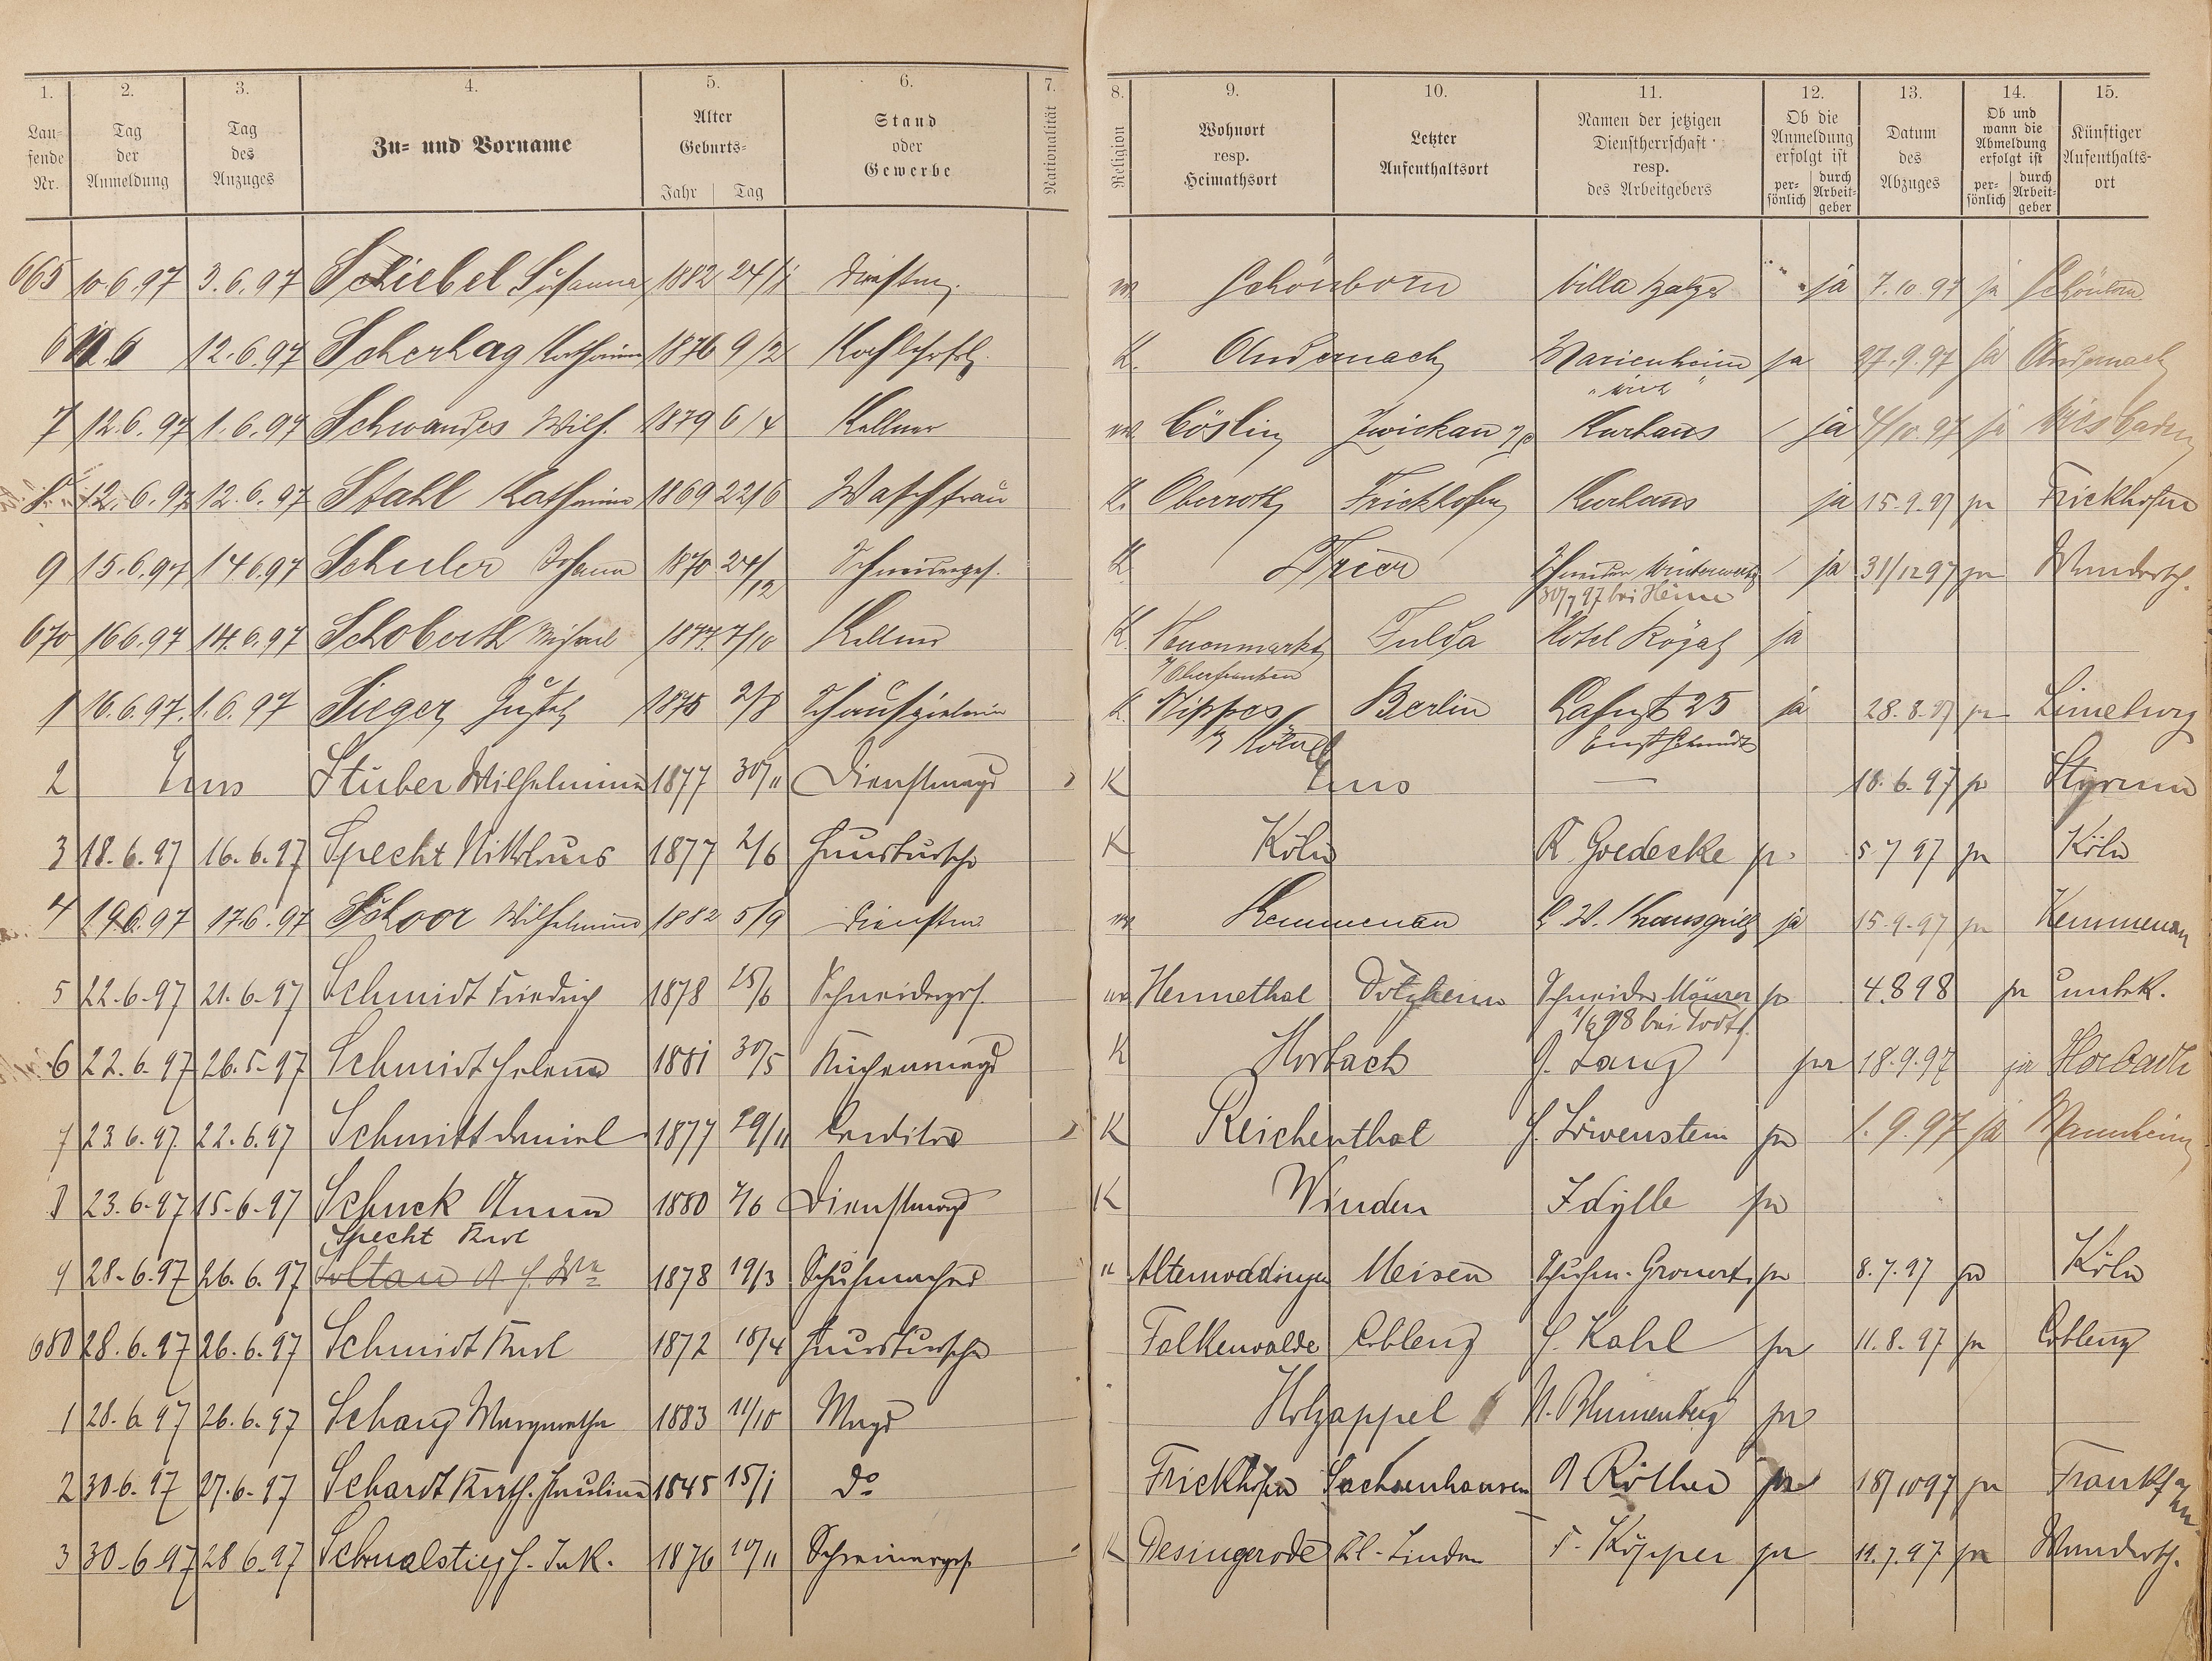 1. 2. 3. 4. 5. 6. 7. 8. 9. 10. 11. 12. 13. 14. 15.
Lau-
fende
Nr.
Tag
der
Anmeldung
Tag
des
Anzuges
Zu- und Vorname
Alter
Geburts-
Jahr Tag
Stand
oder
Gewerbe
Nationalität
Religion
Wohnort
resp.
Heimathsort
Letzter
Aufenthaltsort
Namen der jetzigen
Dienstherrschaft
resp.
des Arbeitgebers
Ob die
Anmeldung
erfolgt ist
per-
sönlich
durch
Arbeit-
geber
Datum
des
Abzuges
Ob und
wann die
Abmeldung
erfolgt ist
per-
sönlich
durch
Arbeit-
geber
Künftiger
Aufenthalts-
ort
665 10.6.97 3.6.97 Schiebel Susanna 1882 24/1 Dienstm. Schönborn Villa ja 7.10.97 ja Schönborn
6 12.6.97 Scherhag Katharina 1876 9/2 K. Andernach Marienheim ja 27.9.97 ja Andernach
7 12.6.97 1.6.97 Schwandes Wilh. 1879 6/4 Kellner Cöslin Zwickau Kurhaus ja 4/10.97 ja Wiesbaden
8 12.6.97 12.6.97 Stahl Katharina 1869 22/6 Waschfrau K. Oberroth Frickhofen Kurhaus ja 15.9.97 ja Frickhofen
9 15.6.97 14 6.97 Schuler Johann 1870 24/12 Schneiderges. K Trier Schneider Winterwerb ja 31/12 97 ja Wandersch.
30/7 97 bei Heine
670 16 6.97 14.6.97 Schoberth Michael 1877 7/10 Kellner K. Neuenmarkt Fulda Hotel Royal ja
Oberfranken
1 16.6.97 1.6.97 Sieger Gustel 1875 2/8 Schauspielerin K. Nippes Berlin Lahnst 25 ja 28.8.97 ja Lüneburg
Ernst Schmidt
2 Ems Stuber Wilhelmine 1877 30/11 Dienstmagd K Ems — 18.6.97 ja Styrum
3 18.6.97 16.6.97 Specht Nikolaus 1877 2/6 Hausbursche K Köln R. Goedecke ja 5 7 97 ja Köln
4 19 6.97 17.6.97 Schoor Wilhelmine 1882 5/9 Dienstm. Kemmenau ja 15.9.97 ja Kemmenau
5 22.6.97 21.6.97 Schmidt Friedrich 1878 25/6 Schneiderges. Hennethal Dotzheim Schneider Mäurer ja 4.8 98 ja unbek.
6 22.6.97 26.5.97 Schmidt Helena 1881 30/5 Küchenmagd K Horbach J. Lang ja 18.9.97 ja Horbach
7 23 6.97 22.6.97 Schmitt Daniel 1877 29/11 Conditor K Reichenthal J. Löwenstein ja 1.9.97 ja Mannheim
8 23.6.97 15.6.97 Schuck Anna 1880 2/6 Dienstmagd K Winden Idylle ja
Specht Karl
9 28.6.97 26.6.97 1878 19/3 Schuhmacher " Meisen Schuhm. Gronert ja 8.7.97 ja Köln
680 28.6.97 26.6.97 Schmidt Karl 1872 18/4 Hausbursche Falkenwalde Coblenz J. Kahl ja 11.8.97 ja Coblenz
1 28.6 97 26.6.97 Schang Margaretha 1883 11/10 Magd Holzappel N. Blumenberg ja
2 30.6.97 27.6.97 Schardt Kath. Paulina 1845 15/1 do Frickhofen Sachsenhausen A Röther ja 18/10 97 ja Frankf a/M
3 30.6 97 28 6.97 Schmalstieg J. Jak. 1876 10/11 Schreinerges. K Desingerode Kl-Linden F. Köpper ja 11.7.97 ja Wandersch.